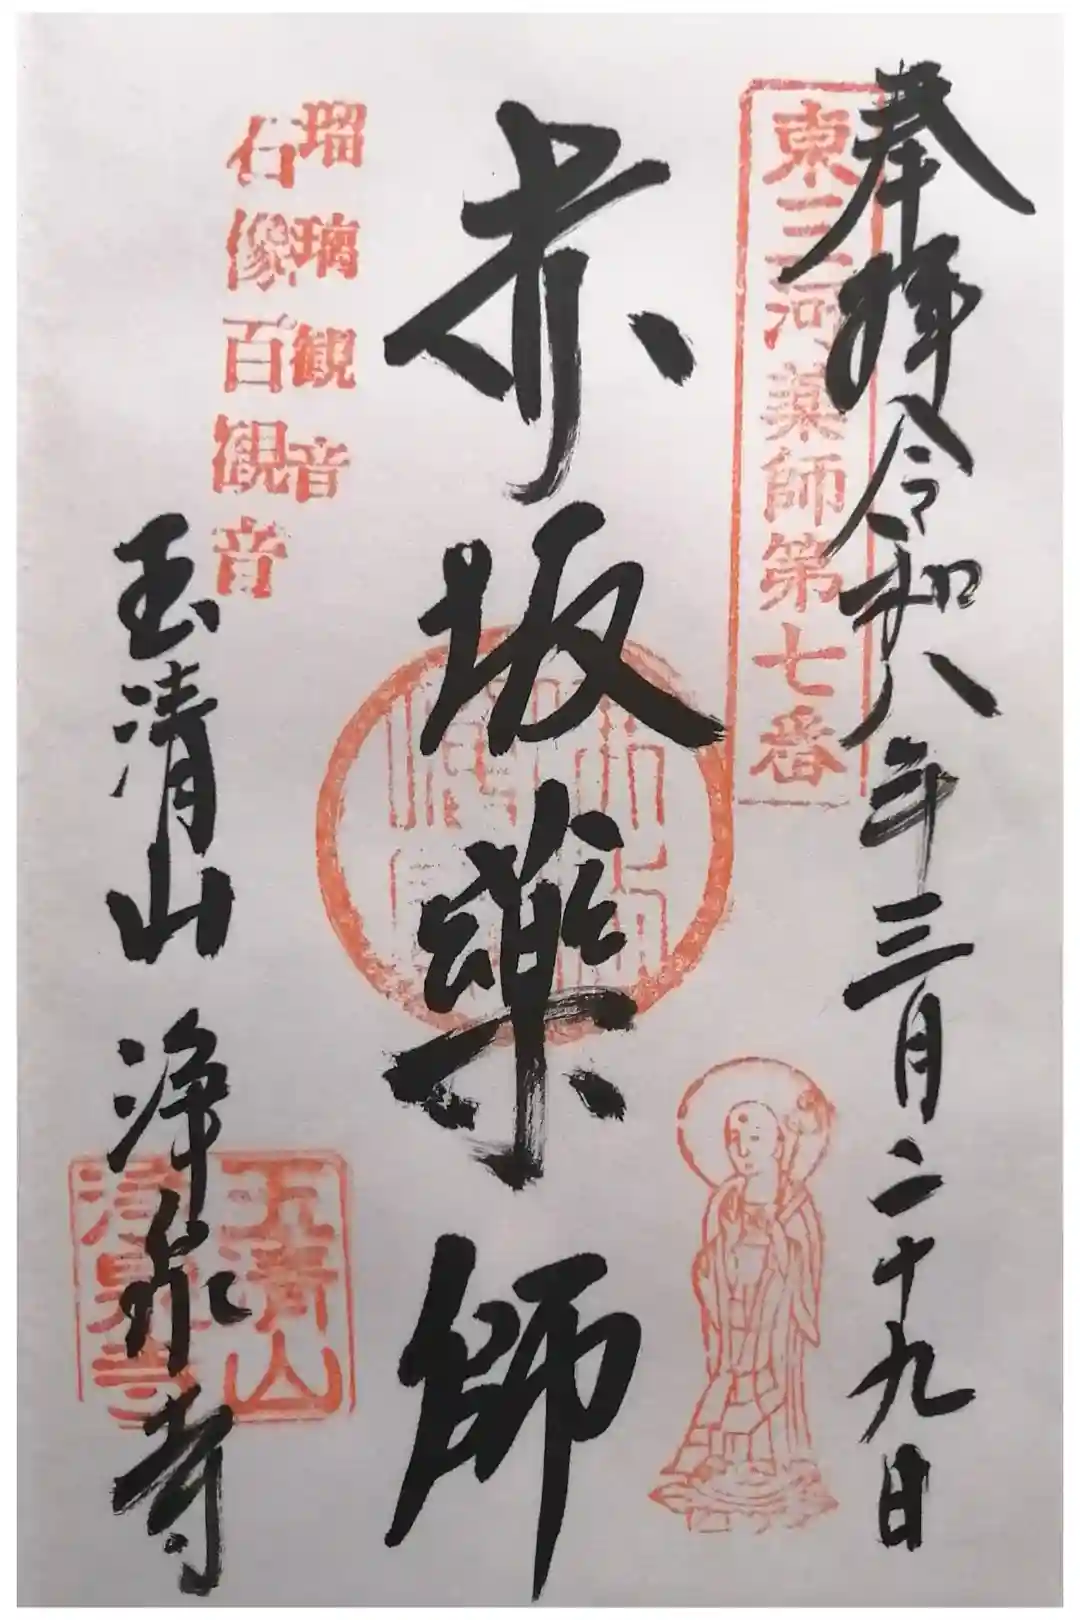 奉拝 令和八年三月二十九日
東三河薬師第七番
赤坂薬師
瑠璃観音
石像百観音
玉清山 浄泉寺
玉清山
浄泉寺